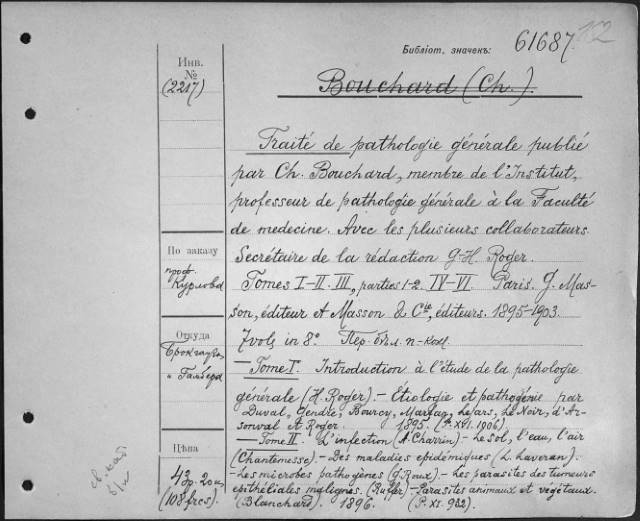 Библіот. значекъ: 61687.
Инв. №
(2217)
Bouchard (Ch.).
Traité de pathologie générale publié
par Ch. Bouchard, membre de l'Institut,
professeur de pathologie générale à la Faculté
de medecine. Avec les plusieurs collaborateurs.
Secrétaire de la rédaction G.-H. Roger.
Tomes I-II. III, parties 1-2. IV-VI. Paris. G. Mas-
son, éditeur et Masson & Cie, éditeurs. 1895-1903.
7 vols in 8°. Пер. бѣл. п-кож.
— Tome I. Introduction à l'étude de la pathologie
générale (H. Roger). - Etiologie et pathogénie par
Duval, Gendre, Bourcy, Marfan, Lejars, Le Noir, d'Ar-
sonval et Roger. 1895. (P. XVI. 1906)
— Tome II. L'infection (A. Charrin). - Le sol, l'eau, l'air
(Chantemesse). - Des maladies epidémiques (L. Laveran). -
- Les microbes pathogènes (G. Roux). - Les parasites des tumeurs
epithéliales malignes. (Ruffer) - Parasites animaux et végétaux.
(Blanchard). 1896. (P. XI. 932)
По заказу
проф.
Курлова
Откуда
Цѣна
43 р. 20 к.
(108 frcs.)